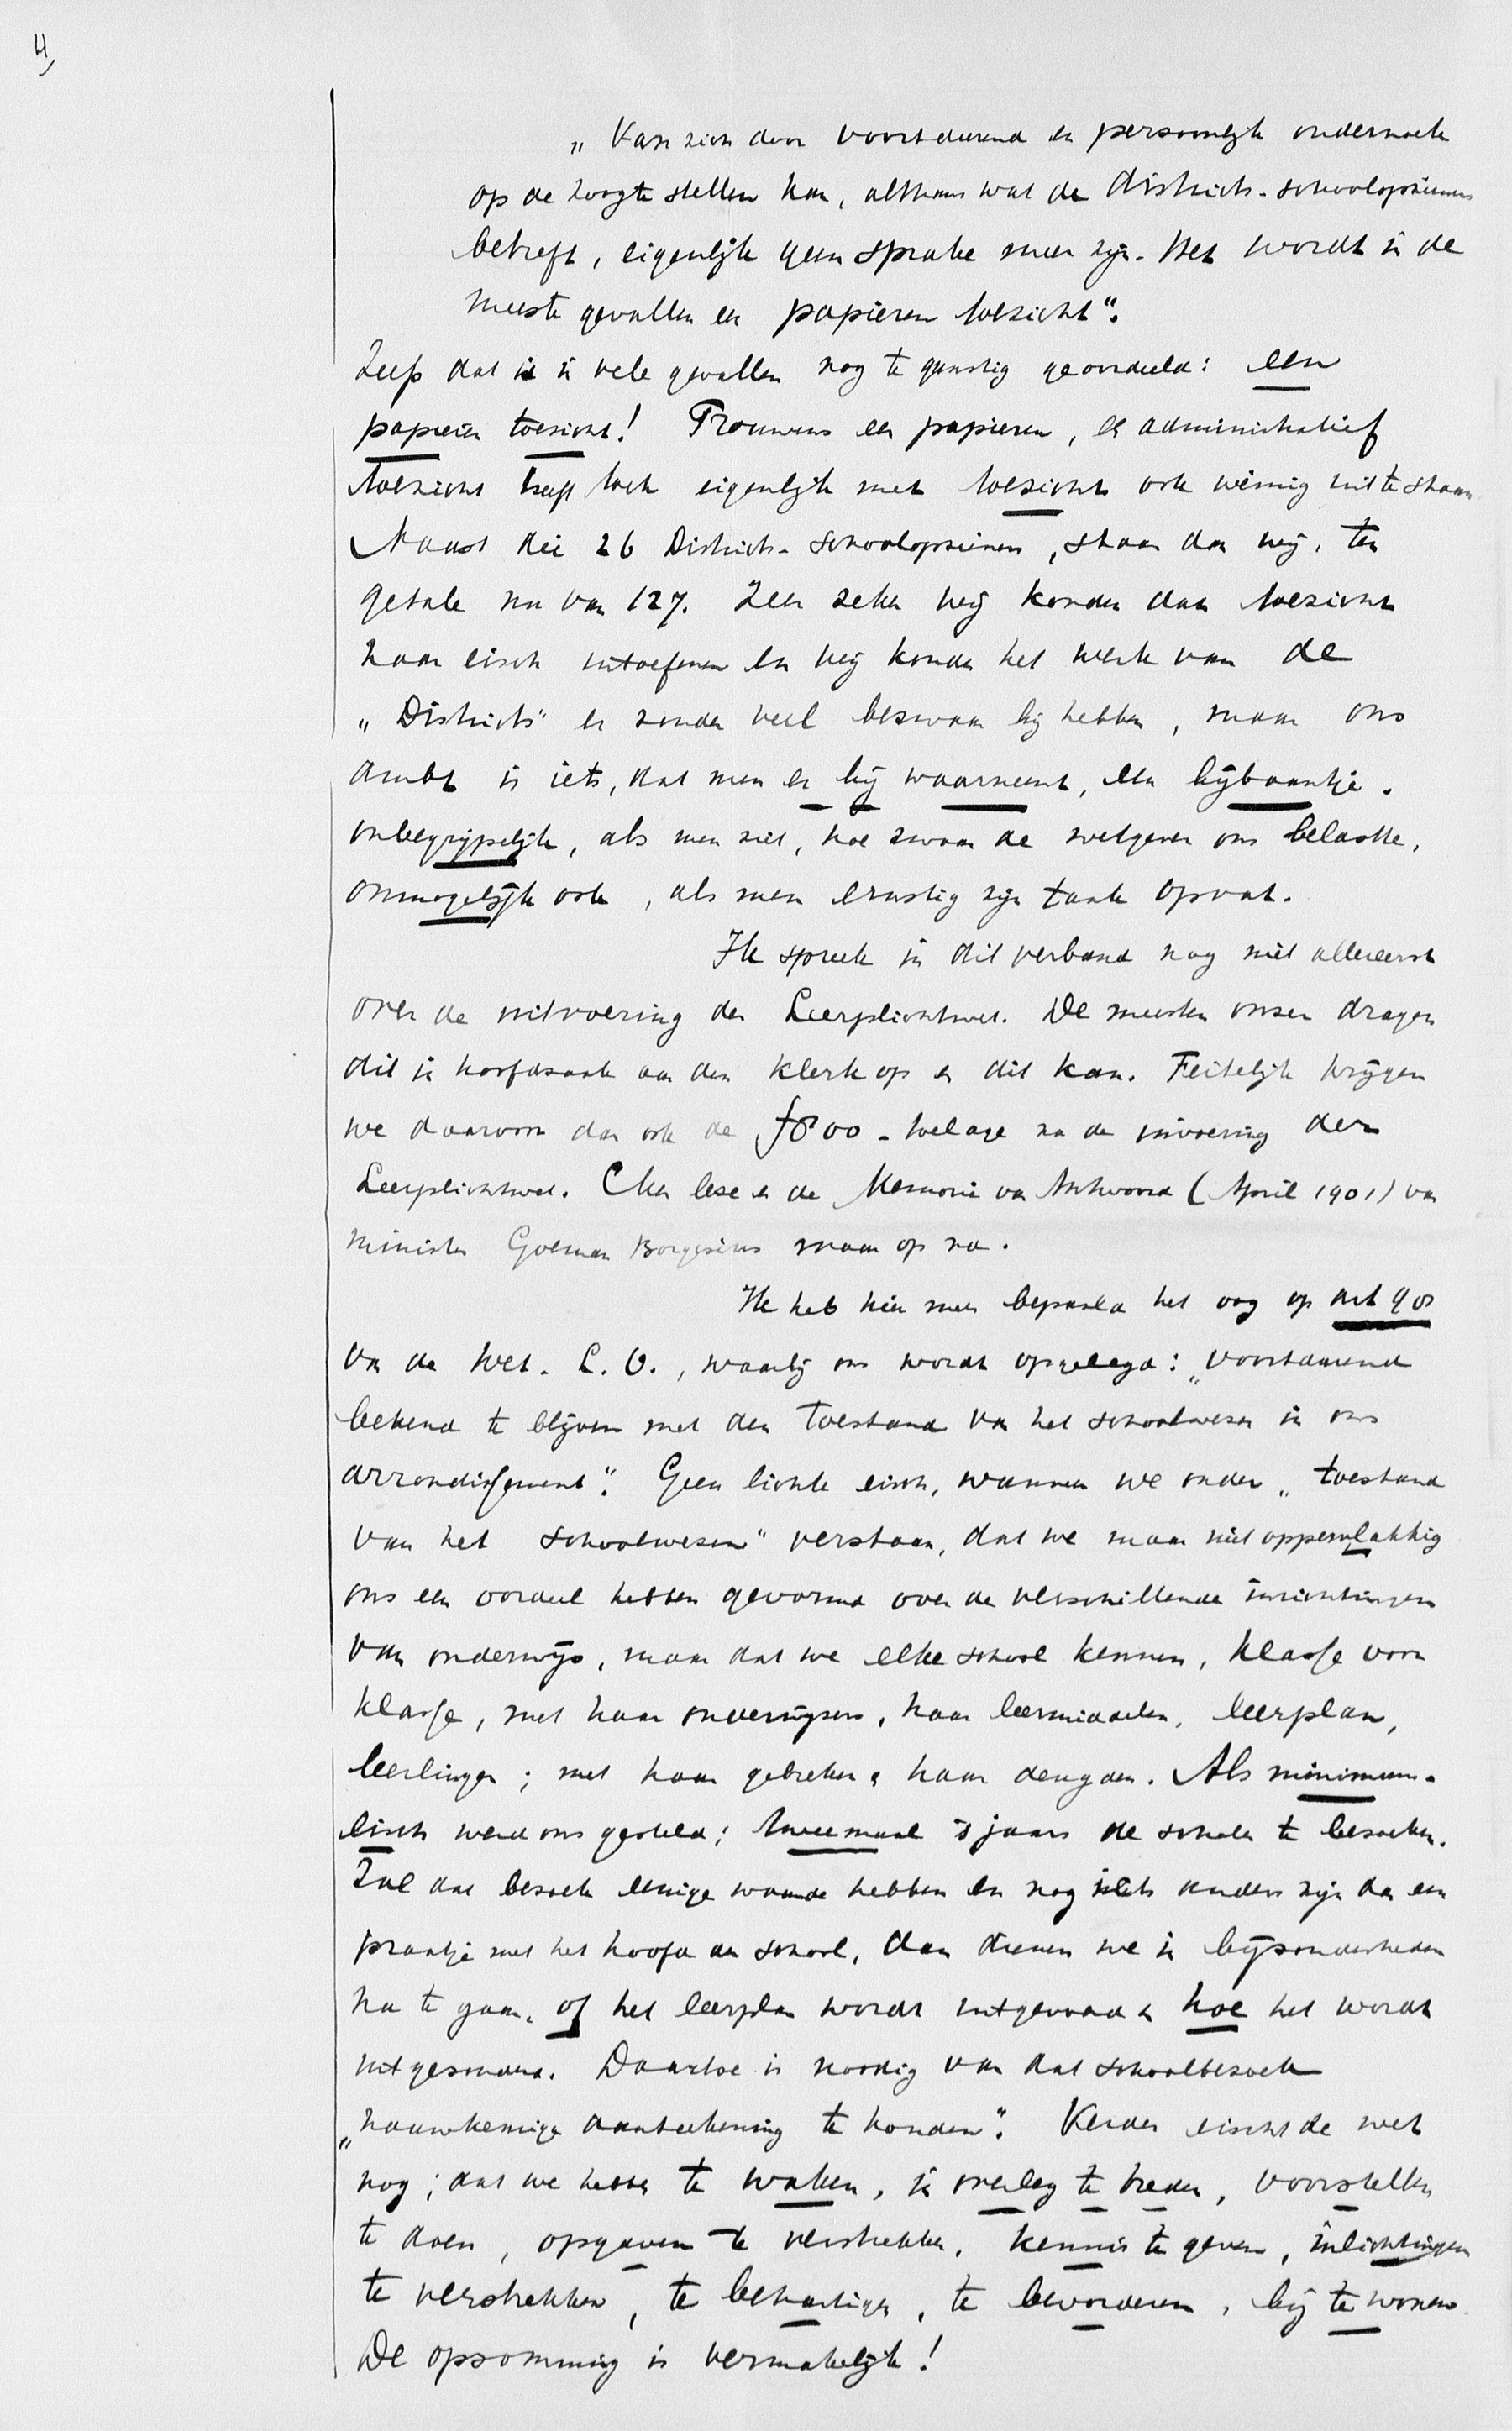 4)
„Van zich door voortdurend en persoonlijk onderzoek
op de hoogte stellen kan, althans wat de districts-schoolopzieners
betreft, eigenlijk geen sprake meer zijn. Het wordt in de
meeste gevallen een papieren toezicht".
Zelfs dat is in vele gevallen nog te gunstig geoordeeld: een
papieren toezicht! Trouwens een papieren, een administratief
toezicht heeft toch eigenlijk met toezicht ook weinig uit te staan.
Naast die 26 Districts-schoolopzieners, staan dan wij, ten
getale nu van 127. Zeer zeker wij konden dan toezicht
naar eisch uitoefenen en wij konden het werk van de
„Districts" er zonder veel bezwaar bij hebben, maar ons
ambt is iets, dat men er bij waarneemt, een bijbaantje.
Onbegrijpelijk, als men ziet, hoe zwaar de wetgever ons belastte,
onmogelijk ook, als men ernstig zijn taak opvat.
Ik spreek in dit verband nog niet allereerst
over de uitvoering der Leerplichtwet. De meesten onzer dragen
dit in hoofdzaak aan den klerk op en dit kan. Feitelijk krijgen
we daarvoor dan ook de f800-toelage na de invoering der
Leerplichtwet. Men leze er de Memorie van Antwoord (April 1901) van
Minister Goeman Borgesius maar op na.
Ik heb hier meer bepaald het oog op art 90
van de Wet. L.O., waarbij ons wordt opgelegd: „voortdurend
bekend te blijven met den toestand van het schoolwezen in ons
arrondissement". Geen lichte eisch, wanneer we onder „toestand
van het schoolwezen" verstaan, dat we maar niet oppervlakkig
ons een oordeel hebben gevormd over de verschillende inrichtingen
van onderwijs, maar dat we elke school kennen, klasse voor
klasse, met haar onderwijzers, haar leermiddelen, leerplan,
leerlingen; met haar gebreken en haar deugden. Als minimum-
eisch werd ons gesteld: tweemaal 's jaars de scholen te bezoeken.
Zal dat bezoek eenige waarde hebben en nog iets anders zijn dan een
praatje met het hoofd der school, dan dienen we in bijzonderheden
na te gaan, of het leerplan wordt uitgevoerd en hoe het wordt
uitgevoerd. Daartoe is noodig van dat schoolbezoek
„nauwkeurige aanteekening te houden". Verder eischt de wet
nog; dat we hebben te waken, in overleg te treden, voorstellen
te doen, opgaven te verstrekken, kennis te geven, inlichtingen
te verstrekken, te behartigen, te bevorderen, bij te wonen.
De opsomming is vermakelijk!